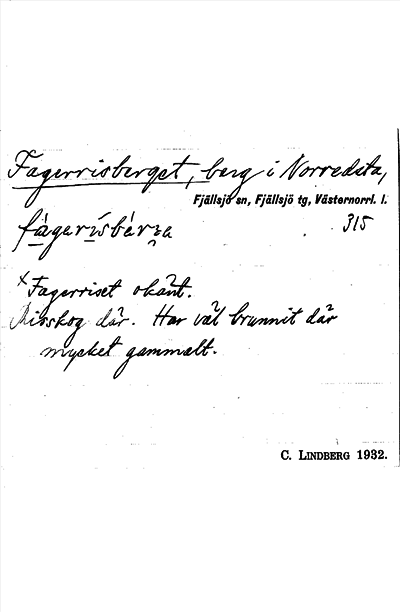 Fagerrisberget, berg i Norredsta,
Fjällsjö sn, Fjällsjö tg, Västernorrl. l.
315
x Fagerriset okänt.
Risskog där. Har väl brunnit där
mycket gammalt.
C. LINDBERG 1932.